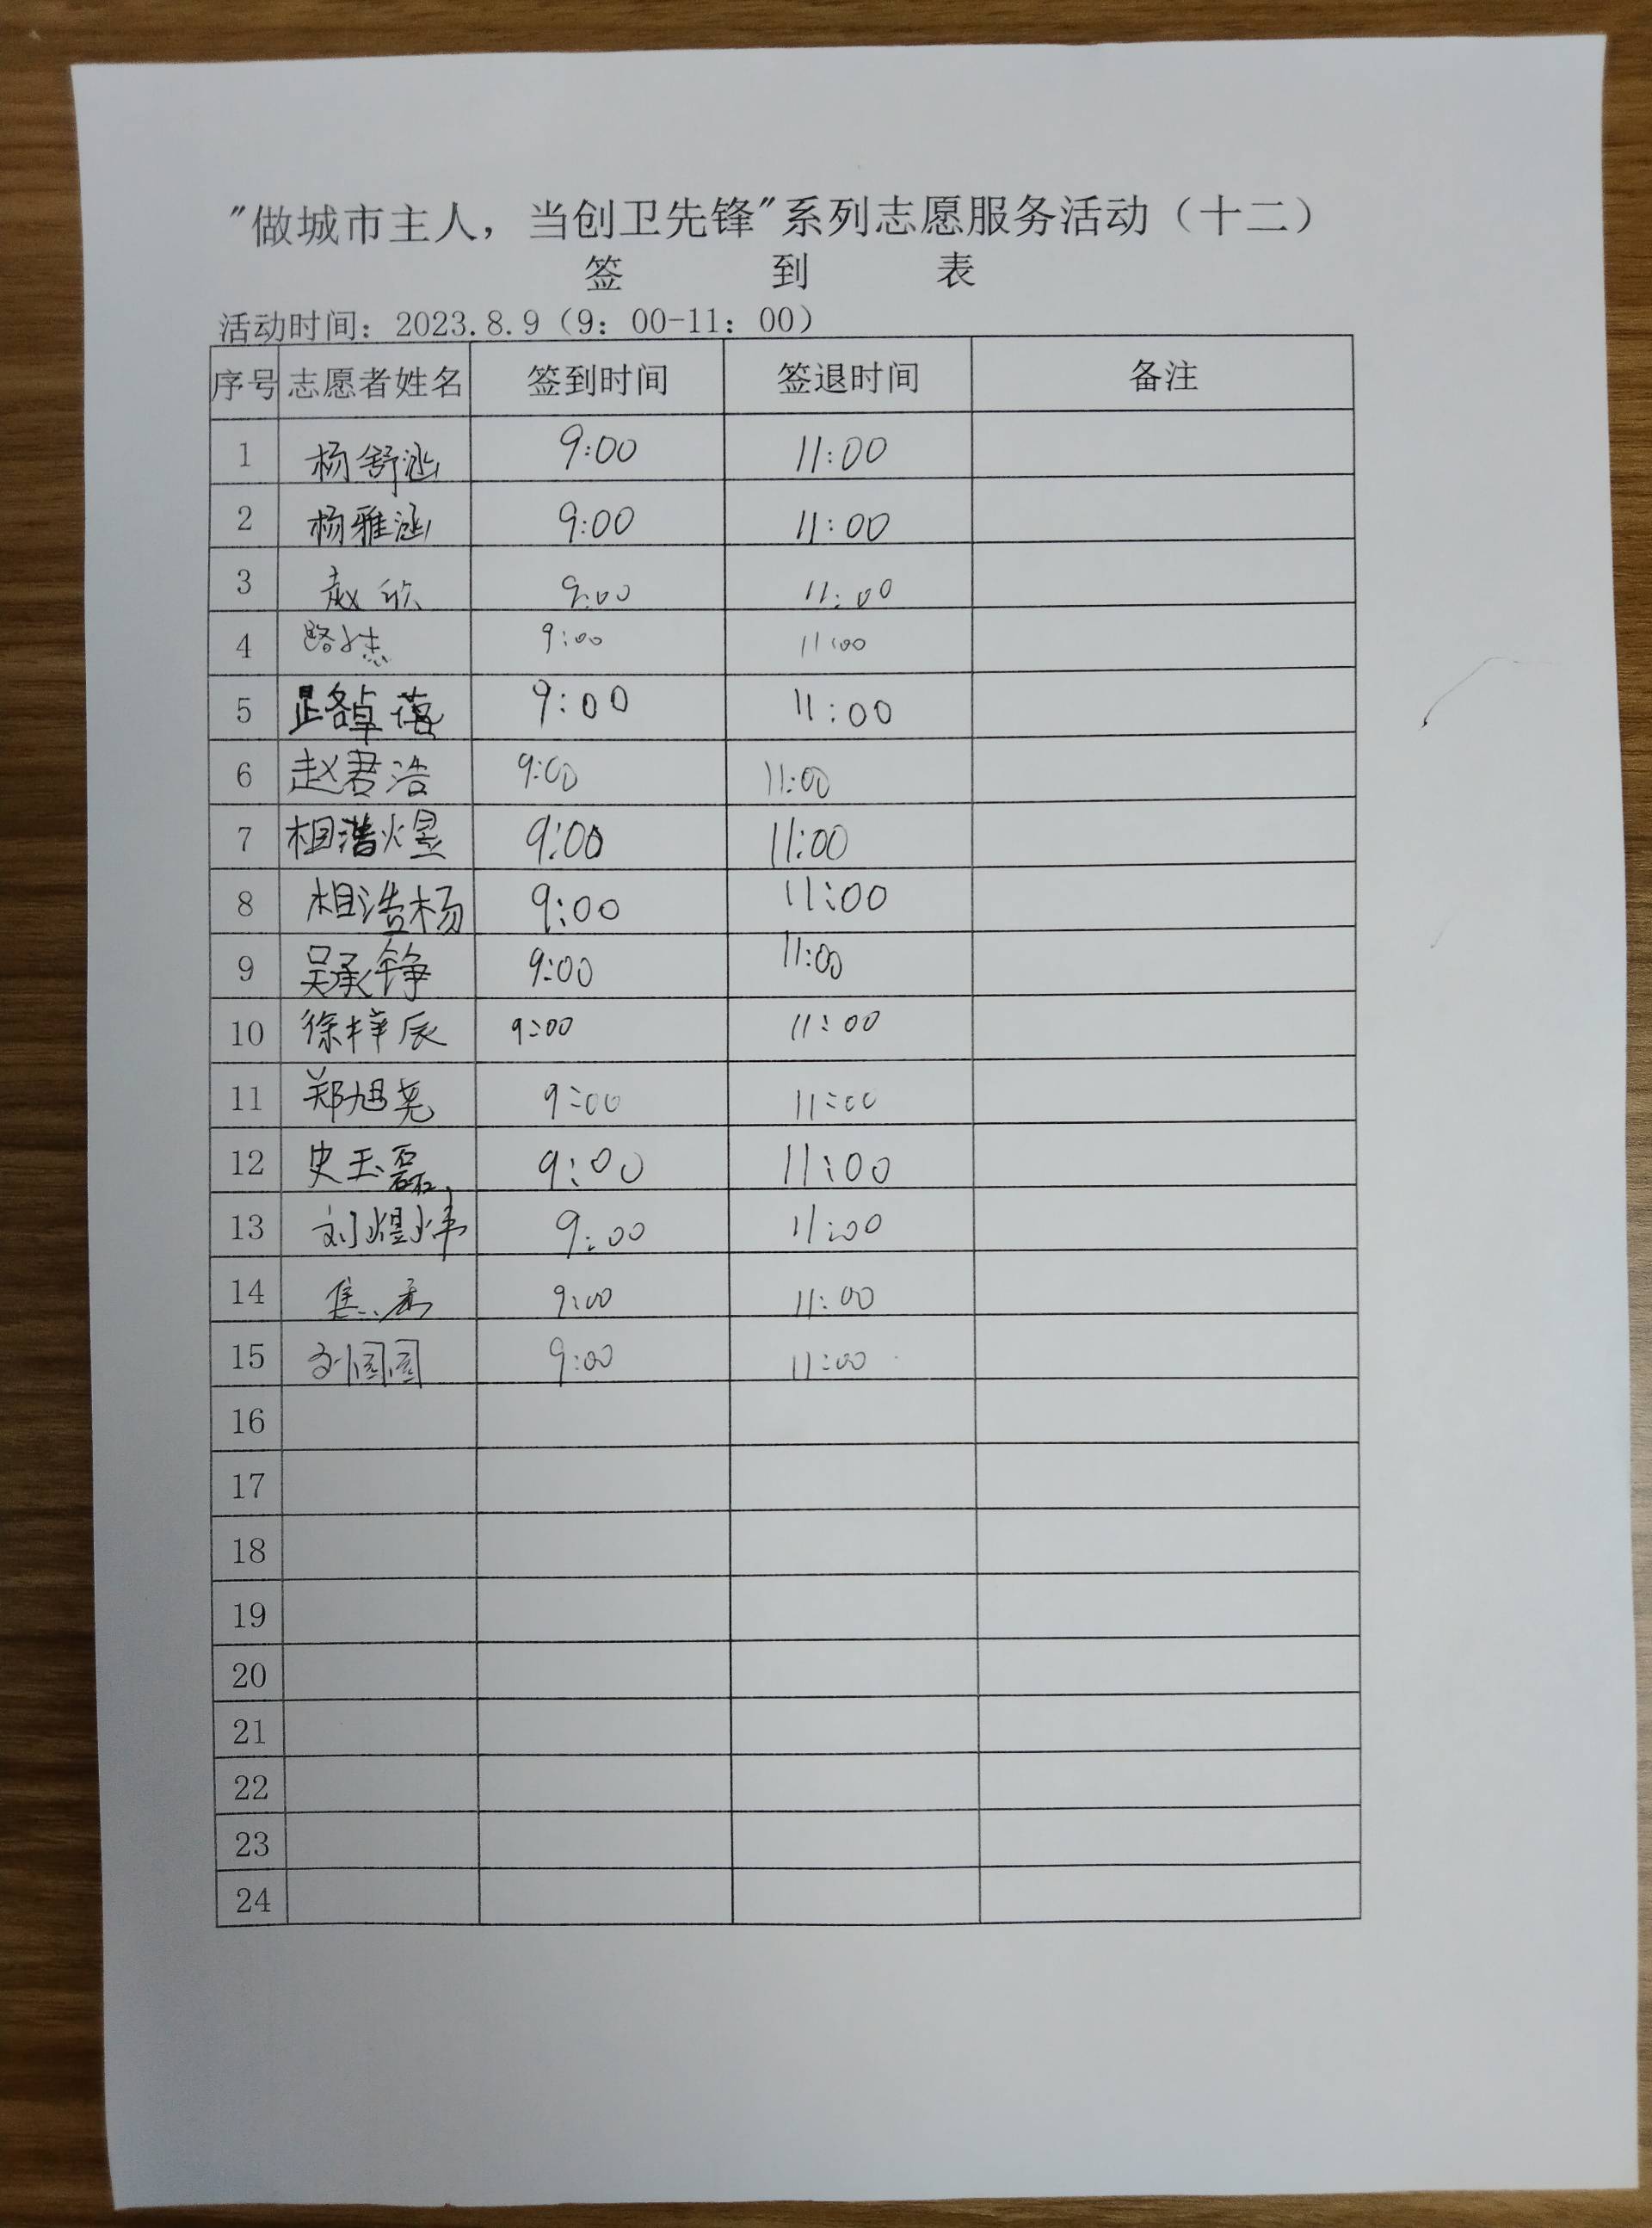 "做城市主人，当创卫先锋"系列志愿服务活动（十二）
签 到 表
活动时间：2023.8.9（9：00-11：00）
序号 志愿者姓名 签到时间 签退时间 备注
1 杨舒涵 9:00 11:00
2 杨雅涵 9:00 11:00
3 赵欣 9:00 11:00
4 路杰 9:00 11:00
5 路卓蓓 9:00 11:00
6 赵君浩 9:00 11:00
7 相浩煜 9:00 11:00
8 相浩杨 9:00 11:00
9 吴承铮 9:00 11:00
10 徐梓辰 9:00 11:00
11 郑旭尧 9:00 11:00
12 史玉磊 9:00 11:00
13 刘煜炜 9:00 11:00
14 焦 9:00 11:00
15 刘圆圆 9:00 11:00
16
17
18
19
20
21
22
23
24